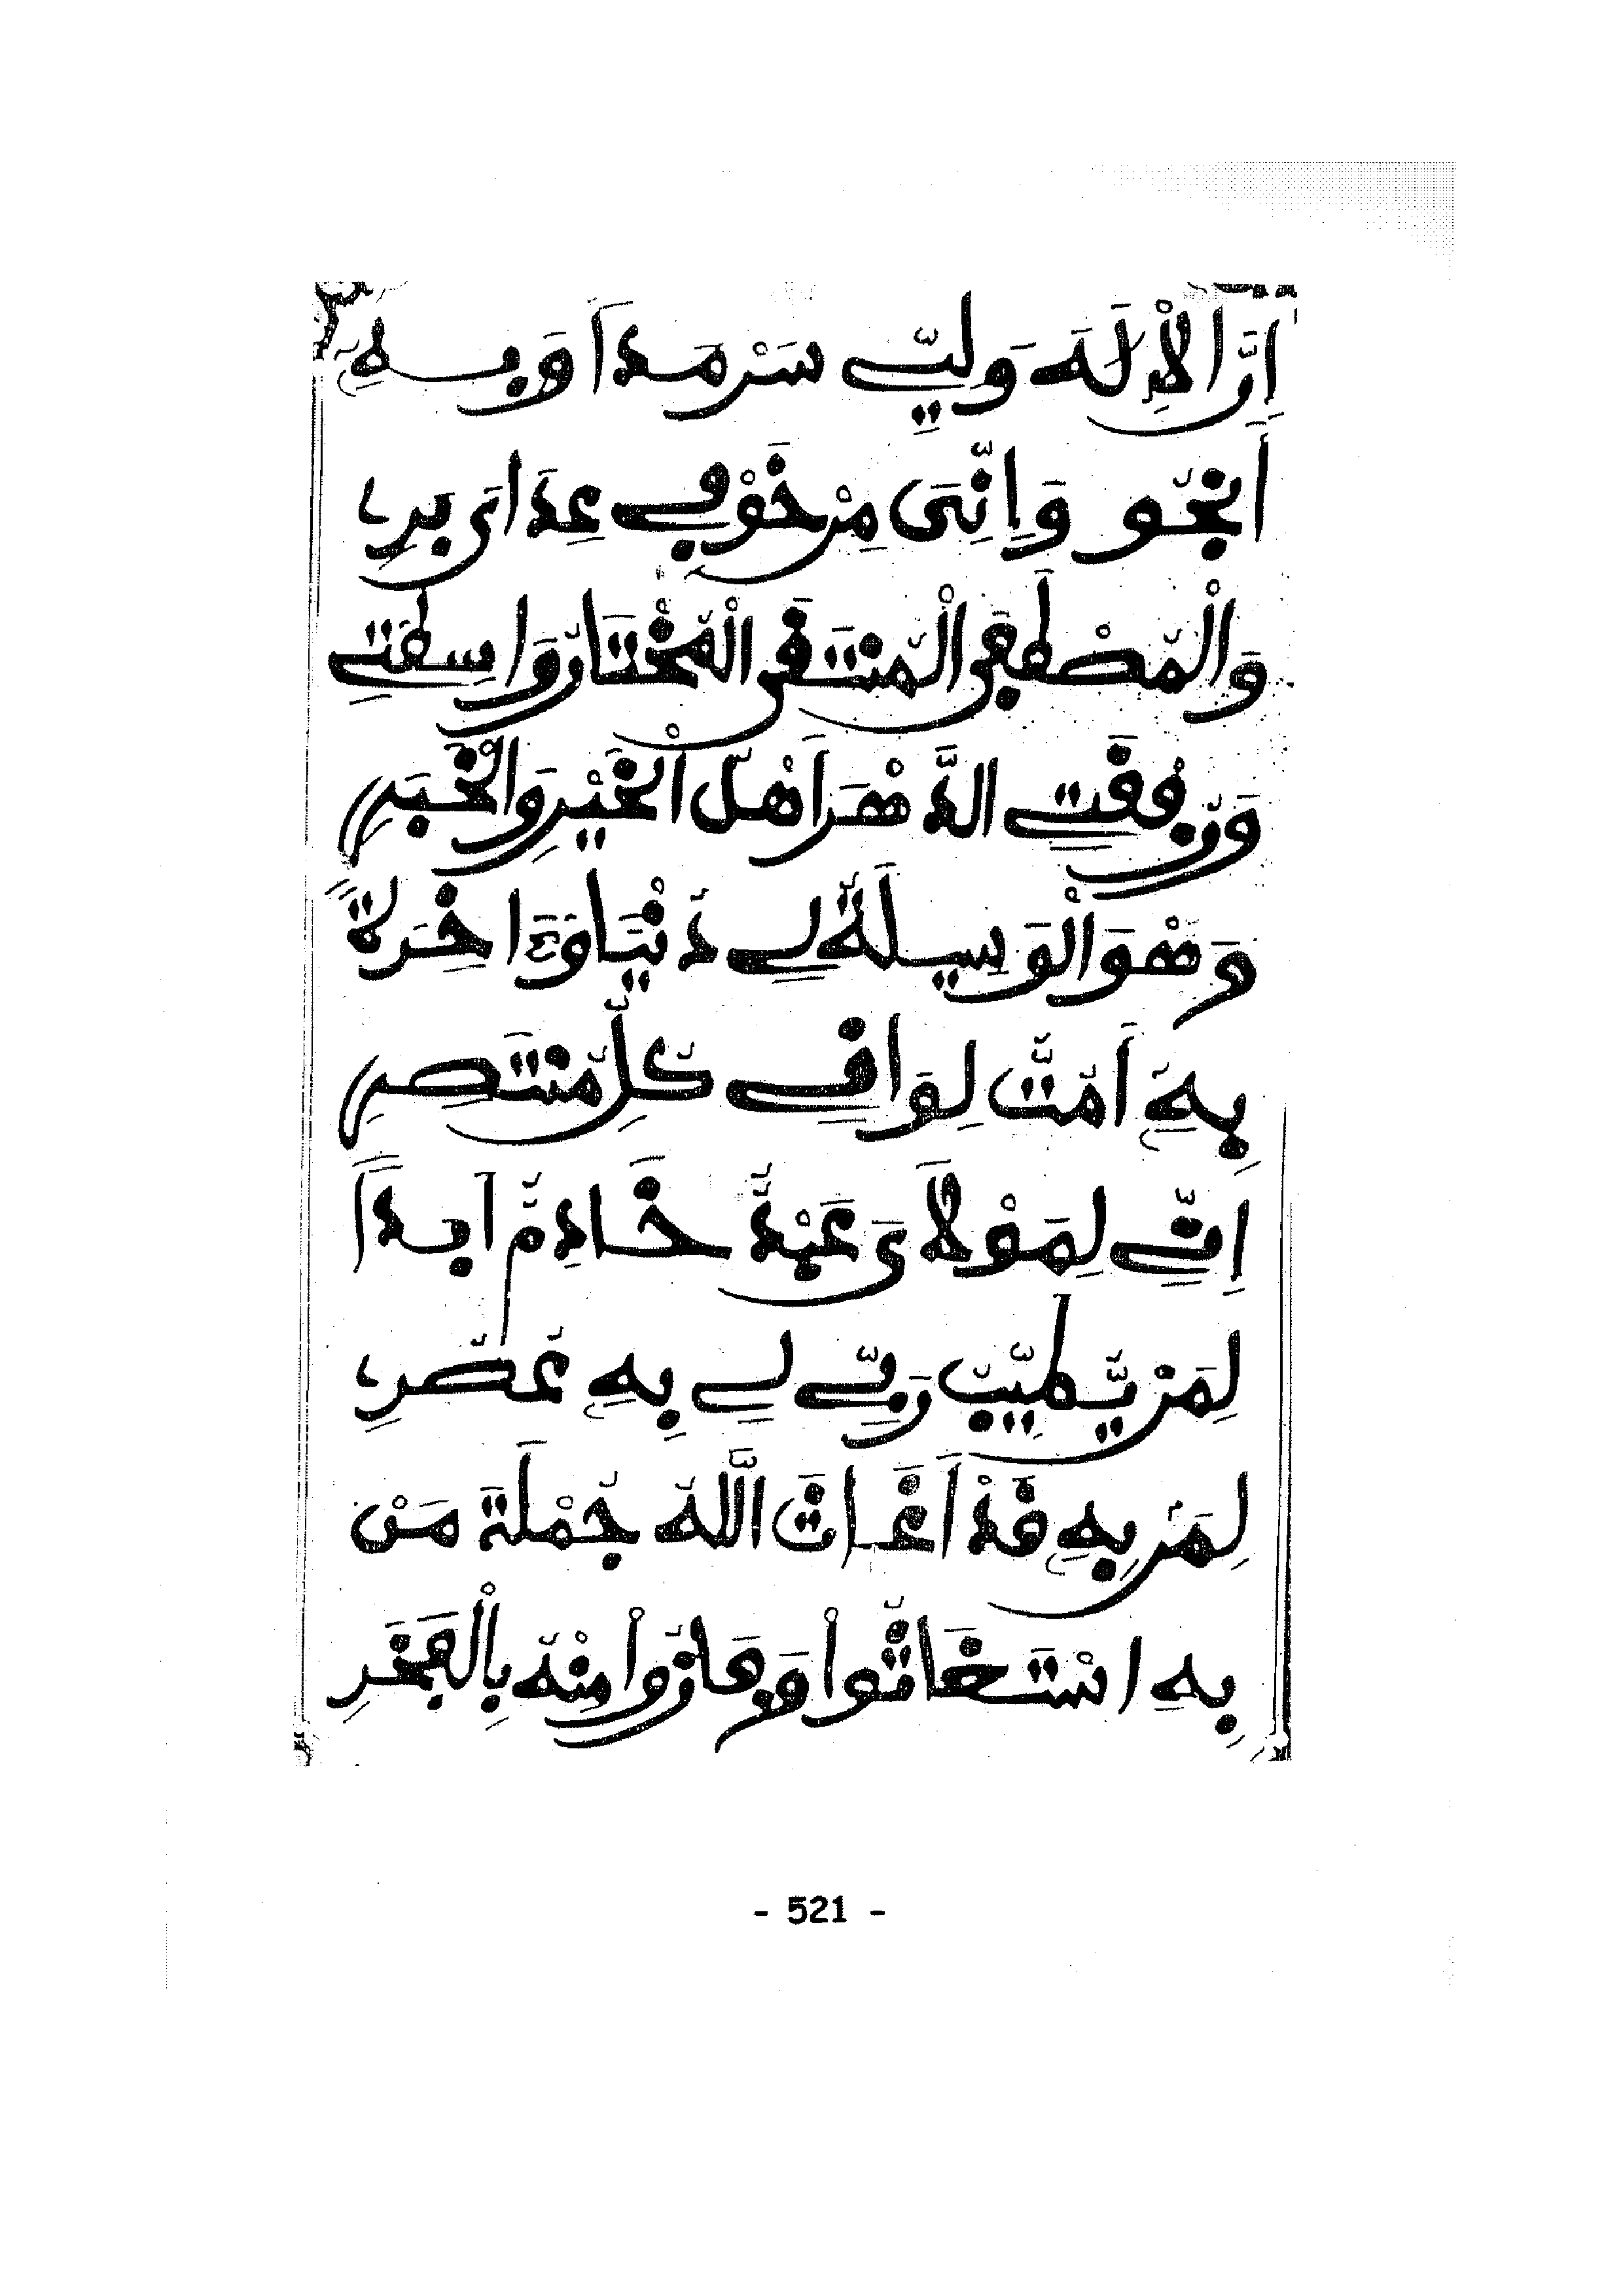 إِنَّ الْإِلَهَ وَلِيِّ سَرْمَدًا وَبِهِ
أَنْجُو وَإِنِّىَ مِنْ خَوْفِي عِدَاىَ بَرِ
وَالْمُصْطَفَى الْمُنْتَقَى الْمُخْتَارُ وَاسِطَتِي
وَرُفْقَتِي الدَّهْرَ أَهْلُ الْخَيْرِ وَالْخَبَرِ
وَهْوَ الْوَسِيلَةُ لِي دُنْيَا وَءَاخِرَةً
بِهِ أَمُتُّ لِوَافِي كُلِّ مُنْتَصِرِ
إِنِّي لِمَوْلَاىَ عَبْدٌ خَادِمٌ أَبَدًا
لِمَنْ يُطَيِّبُ رَبِّي لِي بِهِ عُصُرِ
لِمَنْ بِهِ قَدْ أَغَاثَ اللَّهُ جُمْلَةَ مَنْ
بِهِ اسْتَغَاثُوا وَفَازُوا مِنْهُ بِالْفَخَرِ
- 521 -